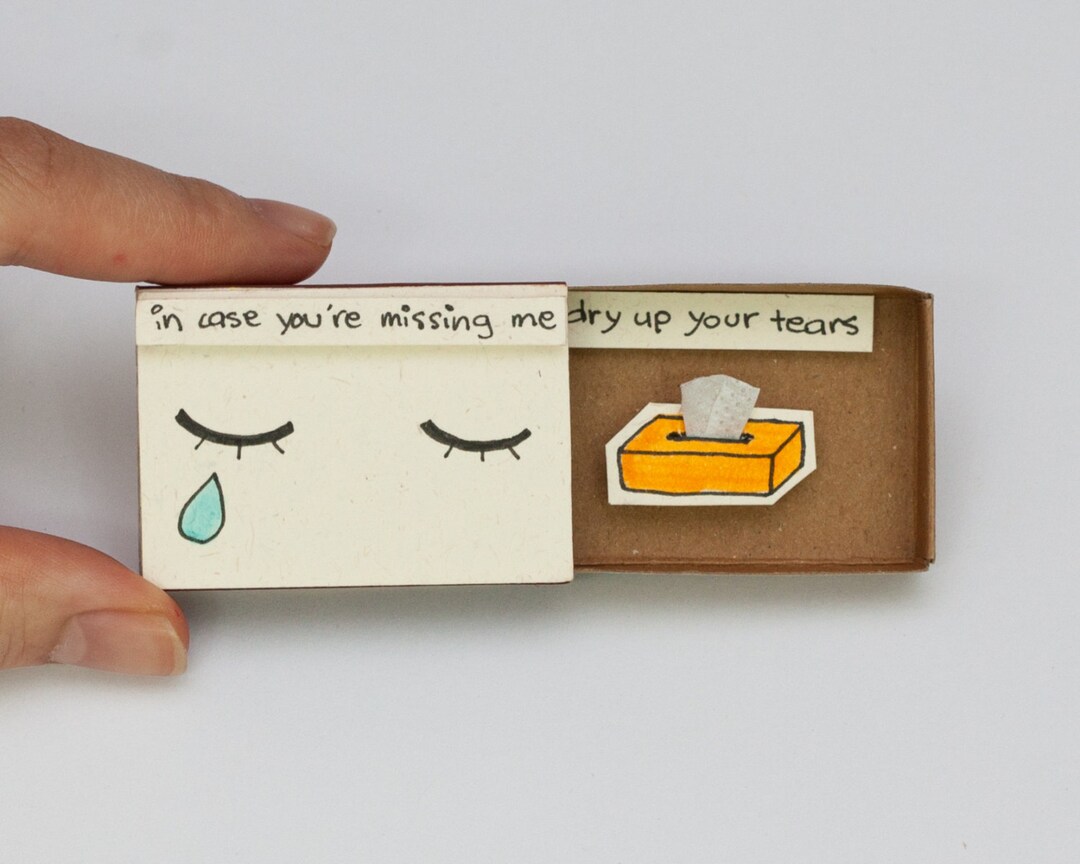 in case you're missing me
dry up your tears